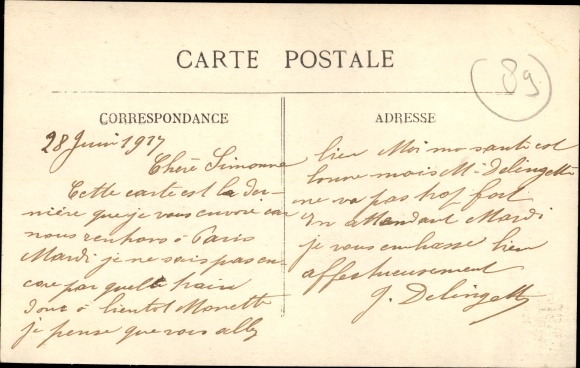 CARTE POSTALE
89
CORRESPONDANCE
28 Juin 1917
Chère Simonne
Cette carte est la der-
nière que je vous envoie car
nous rentrons à Paris
Mardi je ne sais pas en-
core par quelle train
donc à bientot Monette
je pense que vous allez
ADRESSE
bien Moi ma santé est
bonne mais M. Delingette
ne va pas trop fort
En attendant Mardi
je vous embrasse bien
affectueusement
J. Delingette